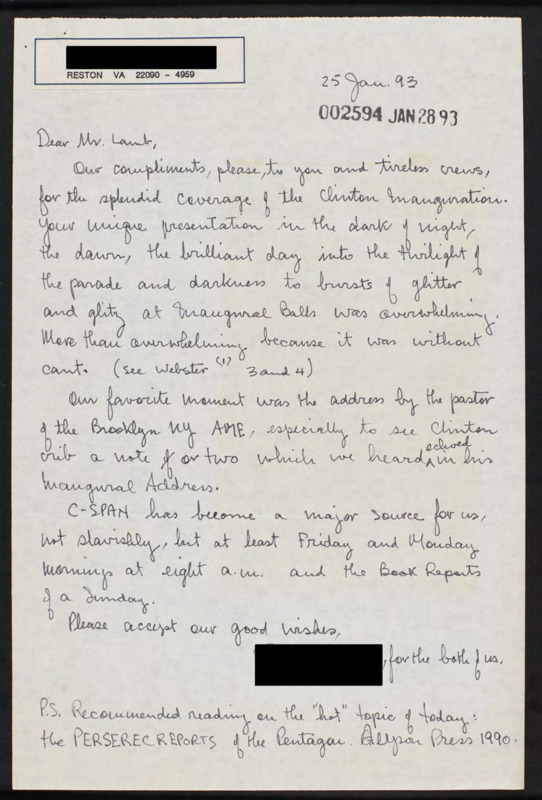 RESTON VA 22090 - 4959
25 Jan. 93
002594 JAN 28 93
Dear Mr. Lamb,
Our compliments, please, to you and tireless crews,
for the splendid coverage of the Clinton Inauguration.
Your unique presentation in the dark of night,
the dawn, the brilliant day into the twilight of
the parade and darkness to bursts of glitter
and glitz at Inaugural Balls was overwhelming.
More than overwhelming because it was without
cant. (see Webster (1) 3 and 4)
Our favorite moment was the address by the pastor
of the Brooklyn NY AME, especially to see Clinton
crib a note or two which we heard echoed in his
Inaugural Address.
C-SPAN has become a major source for us,
not slavishly, but at least Friday and Monday
mornings at eight a.m. and the Book Reports
of a Sunday.
Please accept our good wishes,
, for the both of us.
P.S. Recommended reading on the "hot" topic of today:
the PERSEREC REPORTS of the Pentagon. Alyson Press 1990.